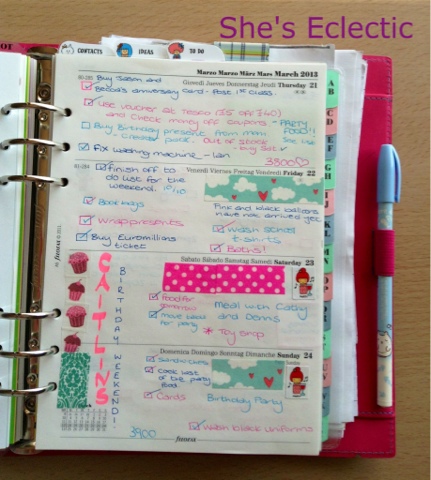 She's Eclectic
CONTACTS
IDEAS
TO DO
Marzo Marzo März Mars March 2013
80-285 Giovedi Jueves Donnerstag Jeudi Thursday 21
Buy Jason and
Becca's anniversary card - Post 1st Class.
Use voucher at Tesco (£5 off £40)
and check money off coupons
- PARTY
FOOD!!
Buy Birthday present from mum
out of stock
- buy set
Fix washing machine - Ian
3800
81-284 Venerdi Viernes Freitag Vendredi Friday 22
Finish off to
do list for the
weekend. 10/10
Book bags
Wrap presents
Buy Euromillions
ticket
Pink and black balloons
have not arrived yet
Wash school
t-shirts
Baths!
Sabato Sábado Samstag Samedi Saturday 23
CAITLINS
BIRTHDAY WEEKEND!
Food for
tomorrow
Move
for party
Meal with Cathy
and Dennis
* Toy Shop
Domenica Domingo Sonntag Dimanche Sunday 24
Sandwiches
Cook rest
of the party
food.
Cards
Birthday Party
3900
Wash black uniforms
filofax